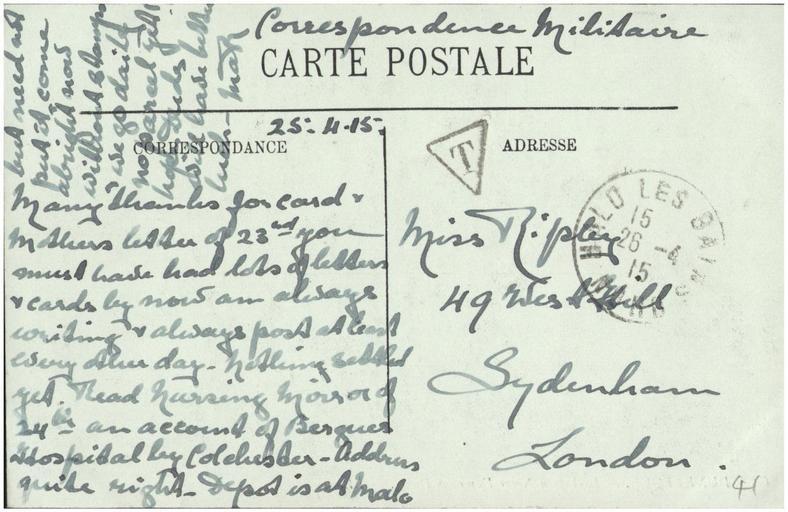 Correspondence Militaire
CARTE POSTALE
25-4-15.
CORRESPONDANCE
ADRESSE
T
MALO LES BAINS
15
26-4
15
NORD
Many thanks for card &
Mothers letter of 23rd you
must have had lots of letters
& cards by now am always
writing & always post at least
every other day - Nothing settled
yet. Read Nursing Mirror of
24th an account of Bergues
Hospital by Colchester - Address
quite right - Depot is at Malo
but need not
put it come
alright now
without stamps
we go daily
no parcel yet
hope Trudy
will have better
luck -
Miss Ripley
49 West Hill
Sydenham
London.
41